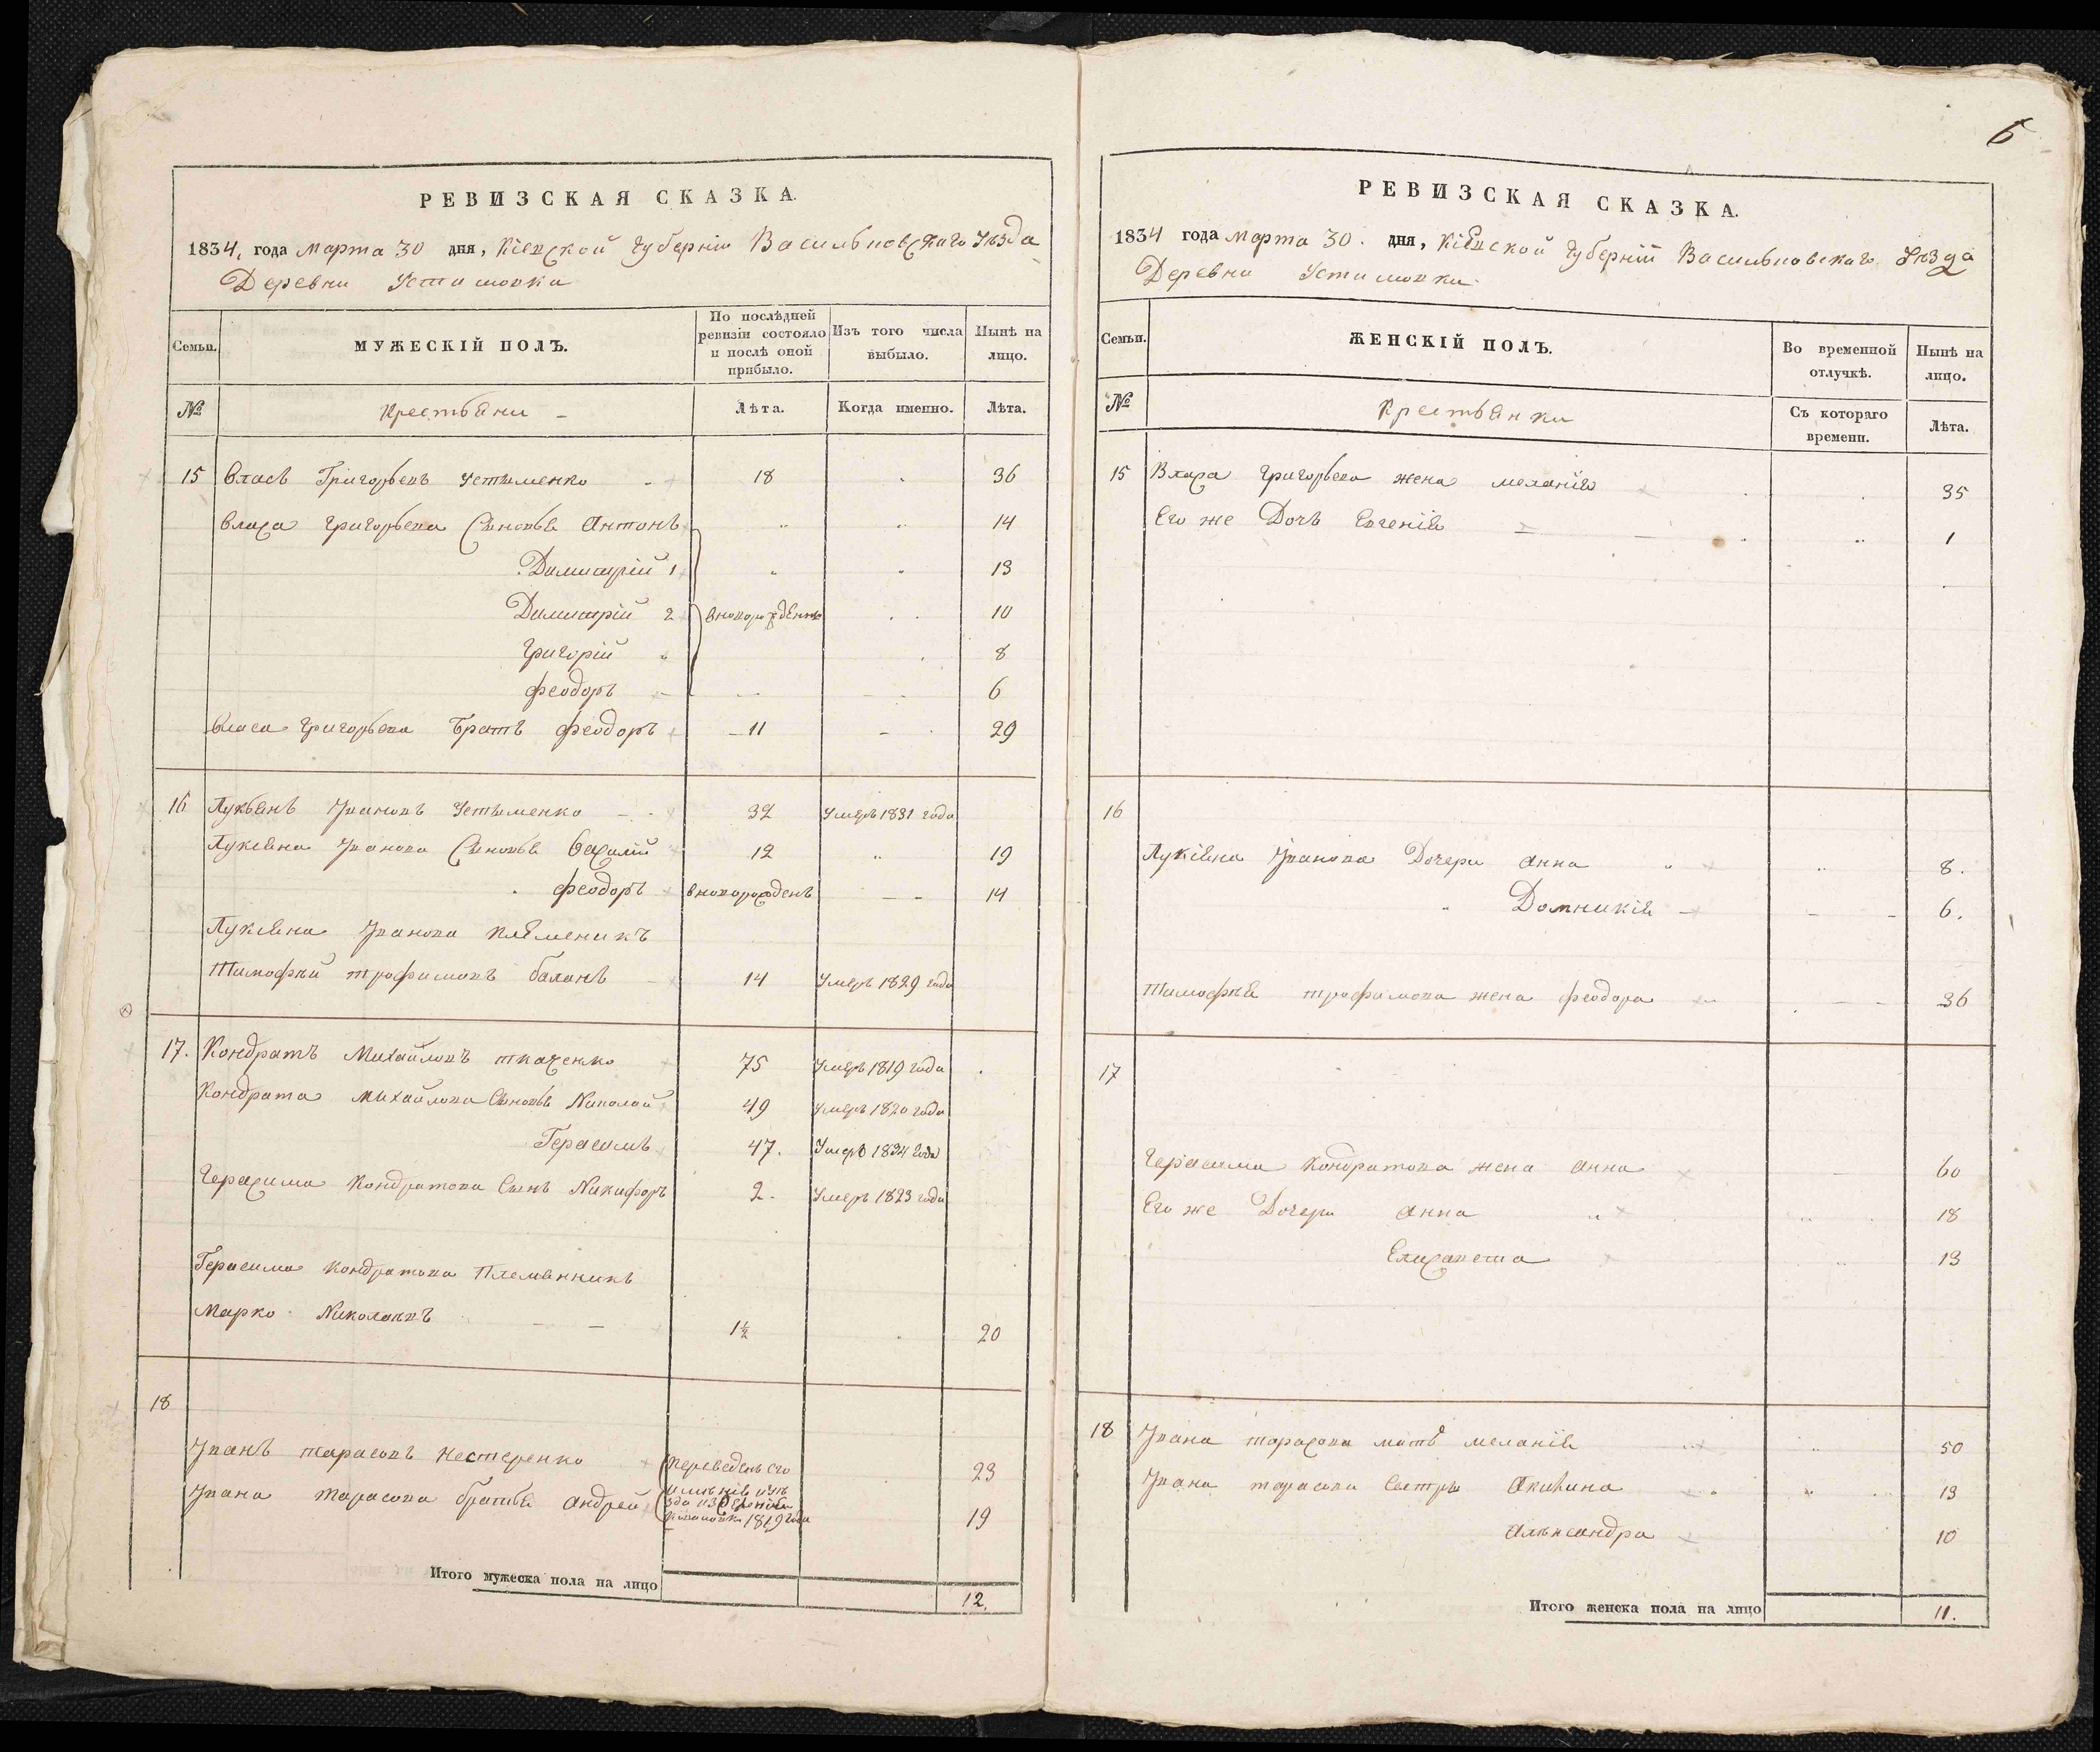 РЕВИЗСКАЯ СКАЗКА.
1834, года марта 30 дня, Кіевской губерніи Васильковскаго Уѣзда
Деревни Устимовки
Семьи. МУЖЕСКІЙ ПОЛЪ. По послѣдней ревизіи состояло и послѣ оной прибыло. Изъ того числа выбыло. Нынѣ на лицо.
№ Крестьяни Лѣта. Когда именно. Лѣта.
15 Власъ Григорьевъ Устыменко 18 36
Власа Григорьева Сыновья Антонъ 14
Димитрій 1 13
Димитрій 2 вноворожденны 10
Григорій 8
Феодоръ 6
Власа Григорьева Братъ Феодоръ 11 29
16 Лукьянъ Ивановъ Устыменко 32 Умеръ 1831 года
Лукіяна Иванова Сыновья Василій 12 19
Феодоръ вноворожденъ 14
Лукіяна Иванова племеникъ
Тимофѣй трофимовъ баланъ 14 Умеръ 1829 года
17. Кондратъ Михайловъ ткаченко 75 Умеръ 1819 года
Кондрата Михайлова Сыновья Николай 49 Умеръ 1820 года
Герасимъ 47. Умеръ 1834 года
Герасима Кондратова Сынъ Никифоръ 2. Умеръ 1823 года
Герасима Кондратова Племянникъ
Марко Николаевъ 1½ 20
18
Иванъ тарасовъ нестеренко Переведенъ его 23
Ивана тарасова братья Андрей 1819 года 19
Итого мужеска пола на лицо 12.
6
РЕВИЗСКАЯ СКАЗКА.
1834 года марта 30. дня, Кіевской губерніи Васильковскаго Уѣзда
Деревни Устимовки
Семьи. ЖЕНСКІЙ ПОЛЪ. Во временной отлучкѣ. Нынѣ на лицо.
№ Крестьянки Съ котораго времени. Лѣта.
15 Власа Григорьева жена меланія 35
Его же Дочь Евгенія 1
16
Лукіяна Иванова Дочери Анна 8.
Домникія 6.
Тимофѣя трофимова жена феодора 36
17
Герасима Кондратова жена Анна 60
Его же Дочери Анна 18
Елисавета 13
18 Ивана тарасова мать меланія 50
Ивана тарасова Сестры Акилина 13
Александра 10
Итого женска пола на лицо 11.